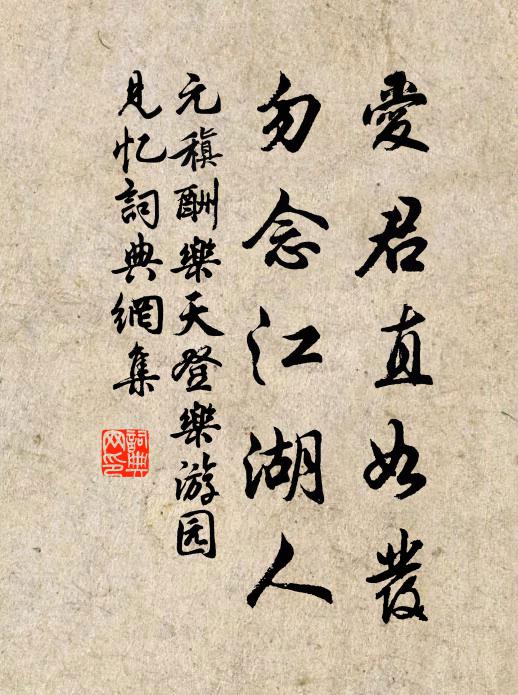 愛君直如發
勿念江湖人
元稹酬樂天登樂游园
見忆詞典網集
詞典
网印